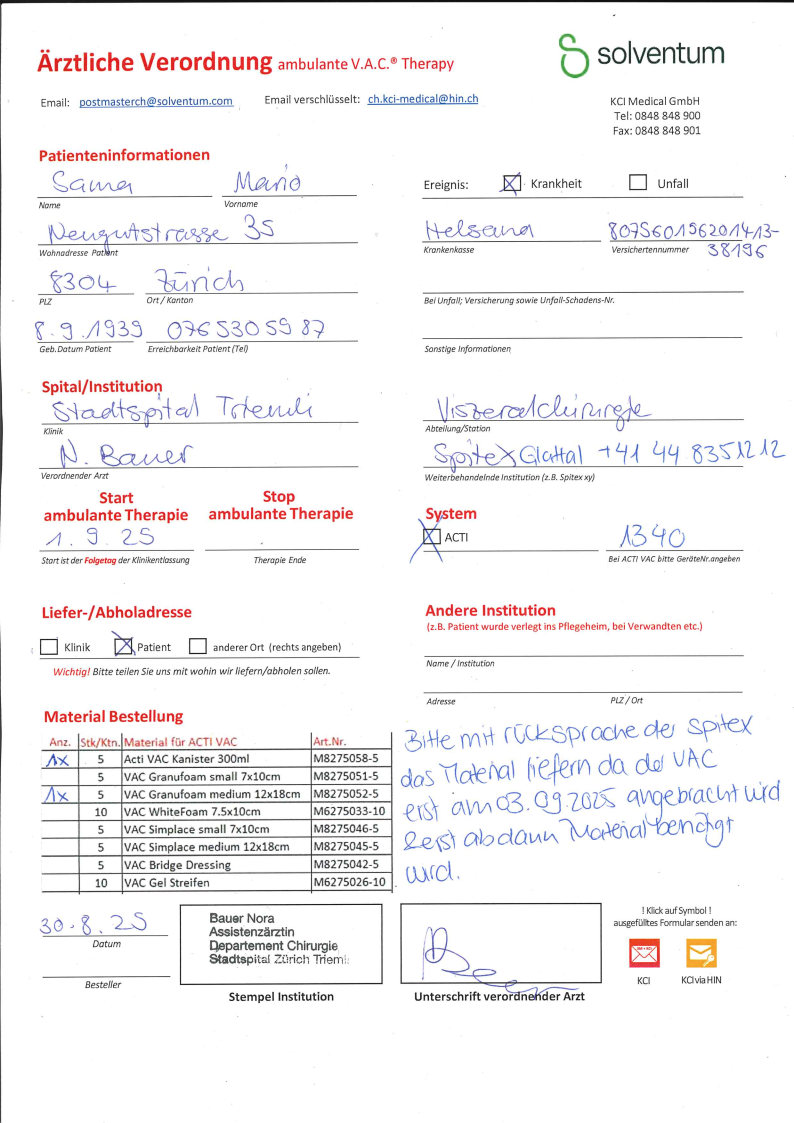 Ärztliche Verordnung ambulante V.A.C.® Therapy
solventum
Email: postmasterch@solventum.com Email verschlüsselt: ch.kci-medical@hin.ch
KCI Medical GmbH
Tel: 0848 848 900
Fax: 0848 848 901
Patienteninformationen
Sama Mario
Name Vorname
Ereignis: Krankheit Unfall
Neugutstrasse 35
Wohnadresse Patient
Helsana 80756015620141 13-
38196
Krankenkasse Versichertennummer
8304 Zürich
PLZ Ort / Kanton
Bei Unfall; Versicherung sowie Unfall-Schadens-Nr.
8.9.1939 076 530 59 87
Geb.Datum Patient Erreichbarkeit Patient (Tel)
Sonstige Informationen
Spital/Institution
Stadtspital Triemli
Klinik
Viszeralchirurgie
Abteilung/Station
N. Bauer
Verordnender Arzt
Spitex Glattal +41 44 835 12 12
Weiterbehandelnde Institution (z.B. Spitex xy)
Start
ambulante Therapie
Stop
ambulante Therapie
1.9.25
Start ist der Folgetag der Klinikentlassung Therapie Ende
System
ACTI 1340
Bei ACTI VAC bitte GeräteNr.angeben
Liefer-/Abholadresse
Klinik Patient anderer Ort (rechts angeben)
Wichtig! Bitte teilen Sie uns mit wohin wir liefern/abholen sollen.
Andere Institution
(z.B. Patient wurde verlegt ins Pflegeheim, bei Verwandten etc.)
Name / Institution
Adresse PLZ / Ort
Material Bestellung
Anz. Stk/Ktn. Material für ACTI VAC Art.Nr.
1x 5 Acti VAC Kanister 300ml M8275058-5
5 VAC Granufoam small 7x10cm M8275051-5
1x 5 VAC Granufoam medium 12x18cm M8275052-5
10 VAC WhiteFoam 7.5x10cm M6275033-10
5 VAC Simplace small 7x10cm M8275046-5
5 VAC Simplace medium 12x18cm M8275045-5
5 VAC Bridge Dressing M8275042-5
10 VAC Gel Streifen M6275026-10
Bitte mit rücksprache der Spitex
das Material liefern da der VAC
erst am 03.09.2025 angebracht wird
& erst ab dann Material benötigt
wird.
30.8.25
Datum
Besteller
Bauer Nora
Assistenzärztin
Departement Chirurgie
Stadtspital Zürich Triemli
Stempel Institution
Unterschrift verordnender Arzt
! Klick auf Symbol !
ausgefülltes Formular senden an:
KCI KCI via HIN